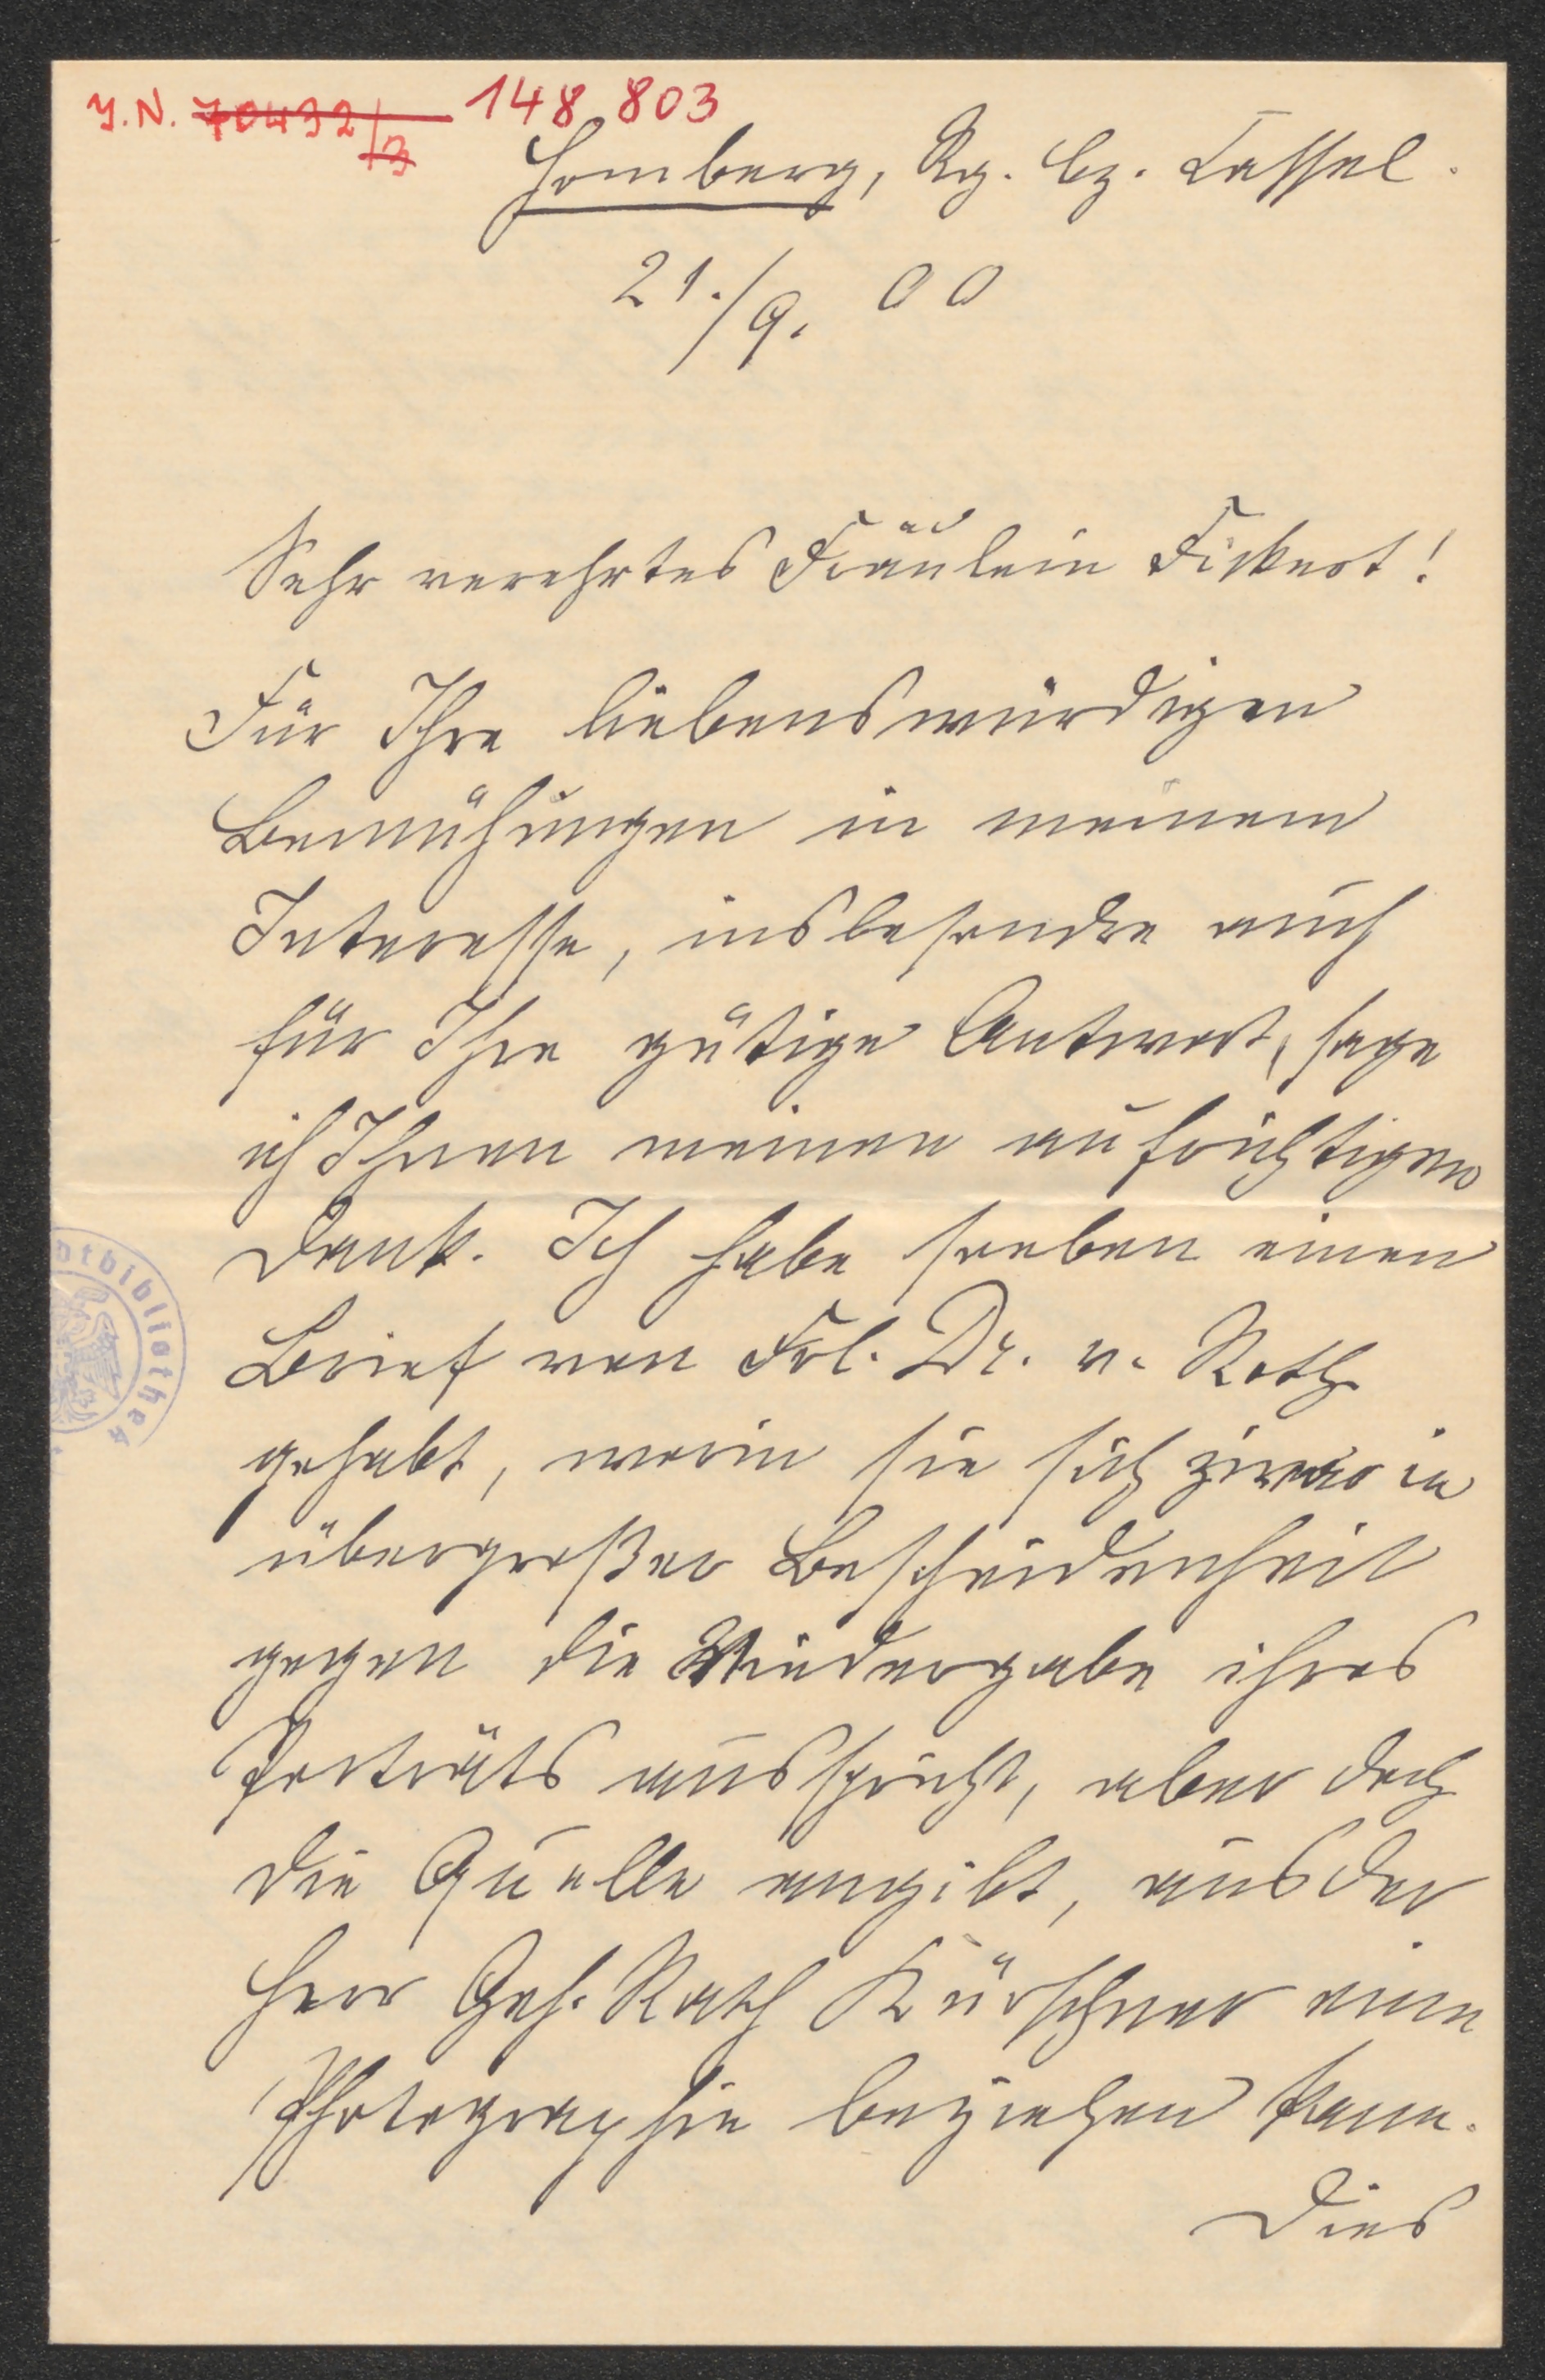 J.N. 70432/3 148.803
Homberg, Rg. bz. Cassel.
21./9. 00
Sehr verehrtes Fräulein Fickert!
Für Ihre liebenswürdigen
Bemühungen in meinem
Interesse, insbesondre auch
für Ihre gütige Antwort, sage
ich Ihnen meinen aufrichtigen
Dank. Ich habe soeben einen
Brief von Frl. Dr. v. Roth
gehabt, worin sie sich zwar in
übergroßer Bescheidenheit
gegen die Wiedergabe ihres
Porträts ausspricht, aber doch
die Quelle angibt, aus der
Herr Geh. Rath Kürschner eine
Photographie beziehen kann.
Dies
otbibliothek